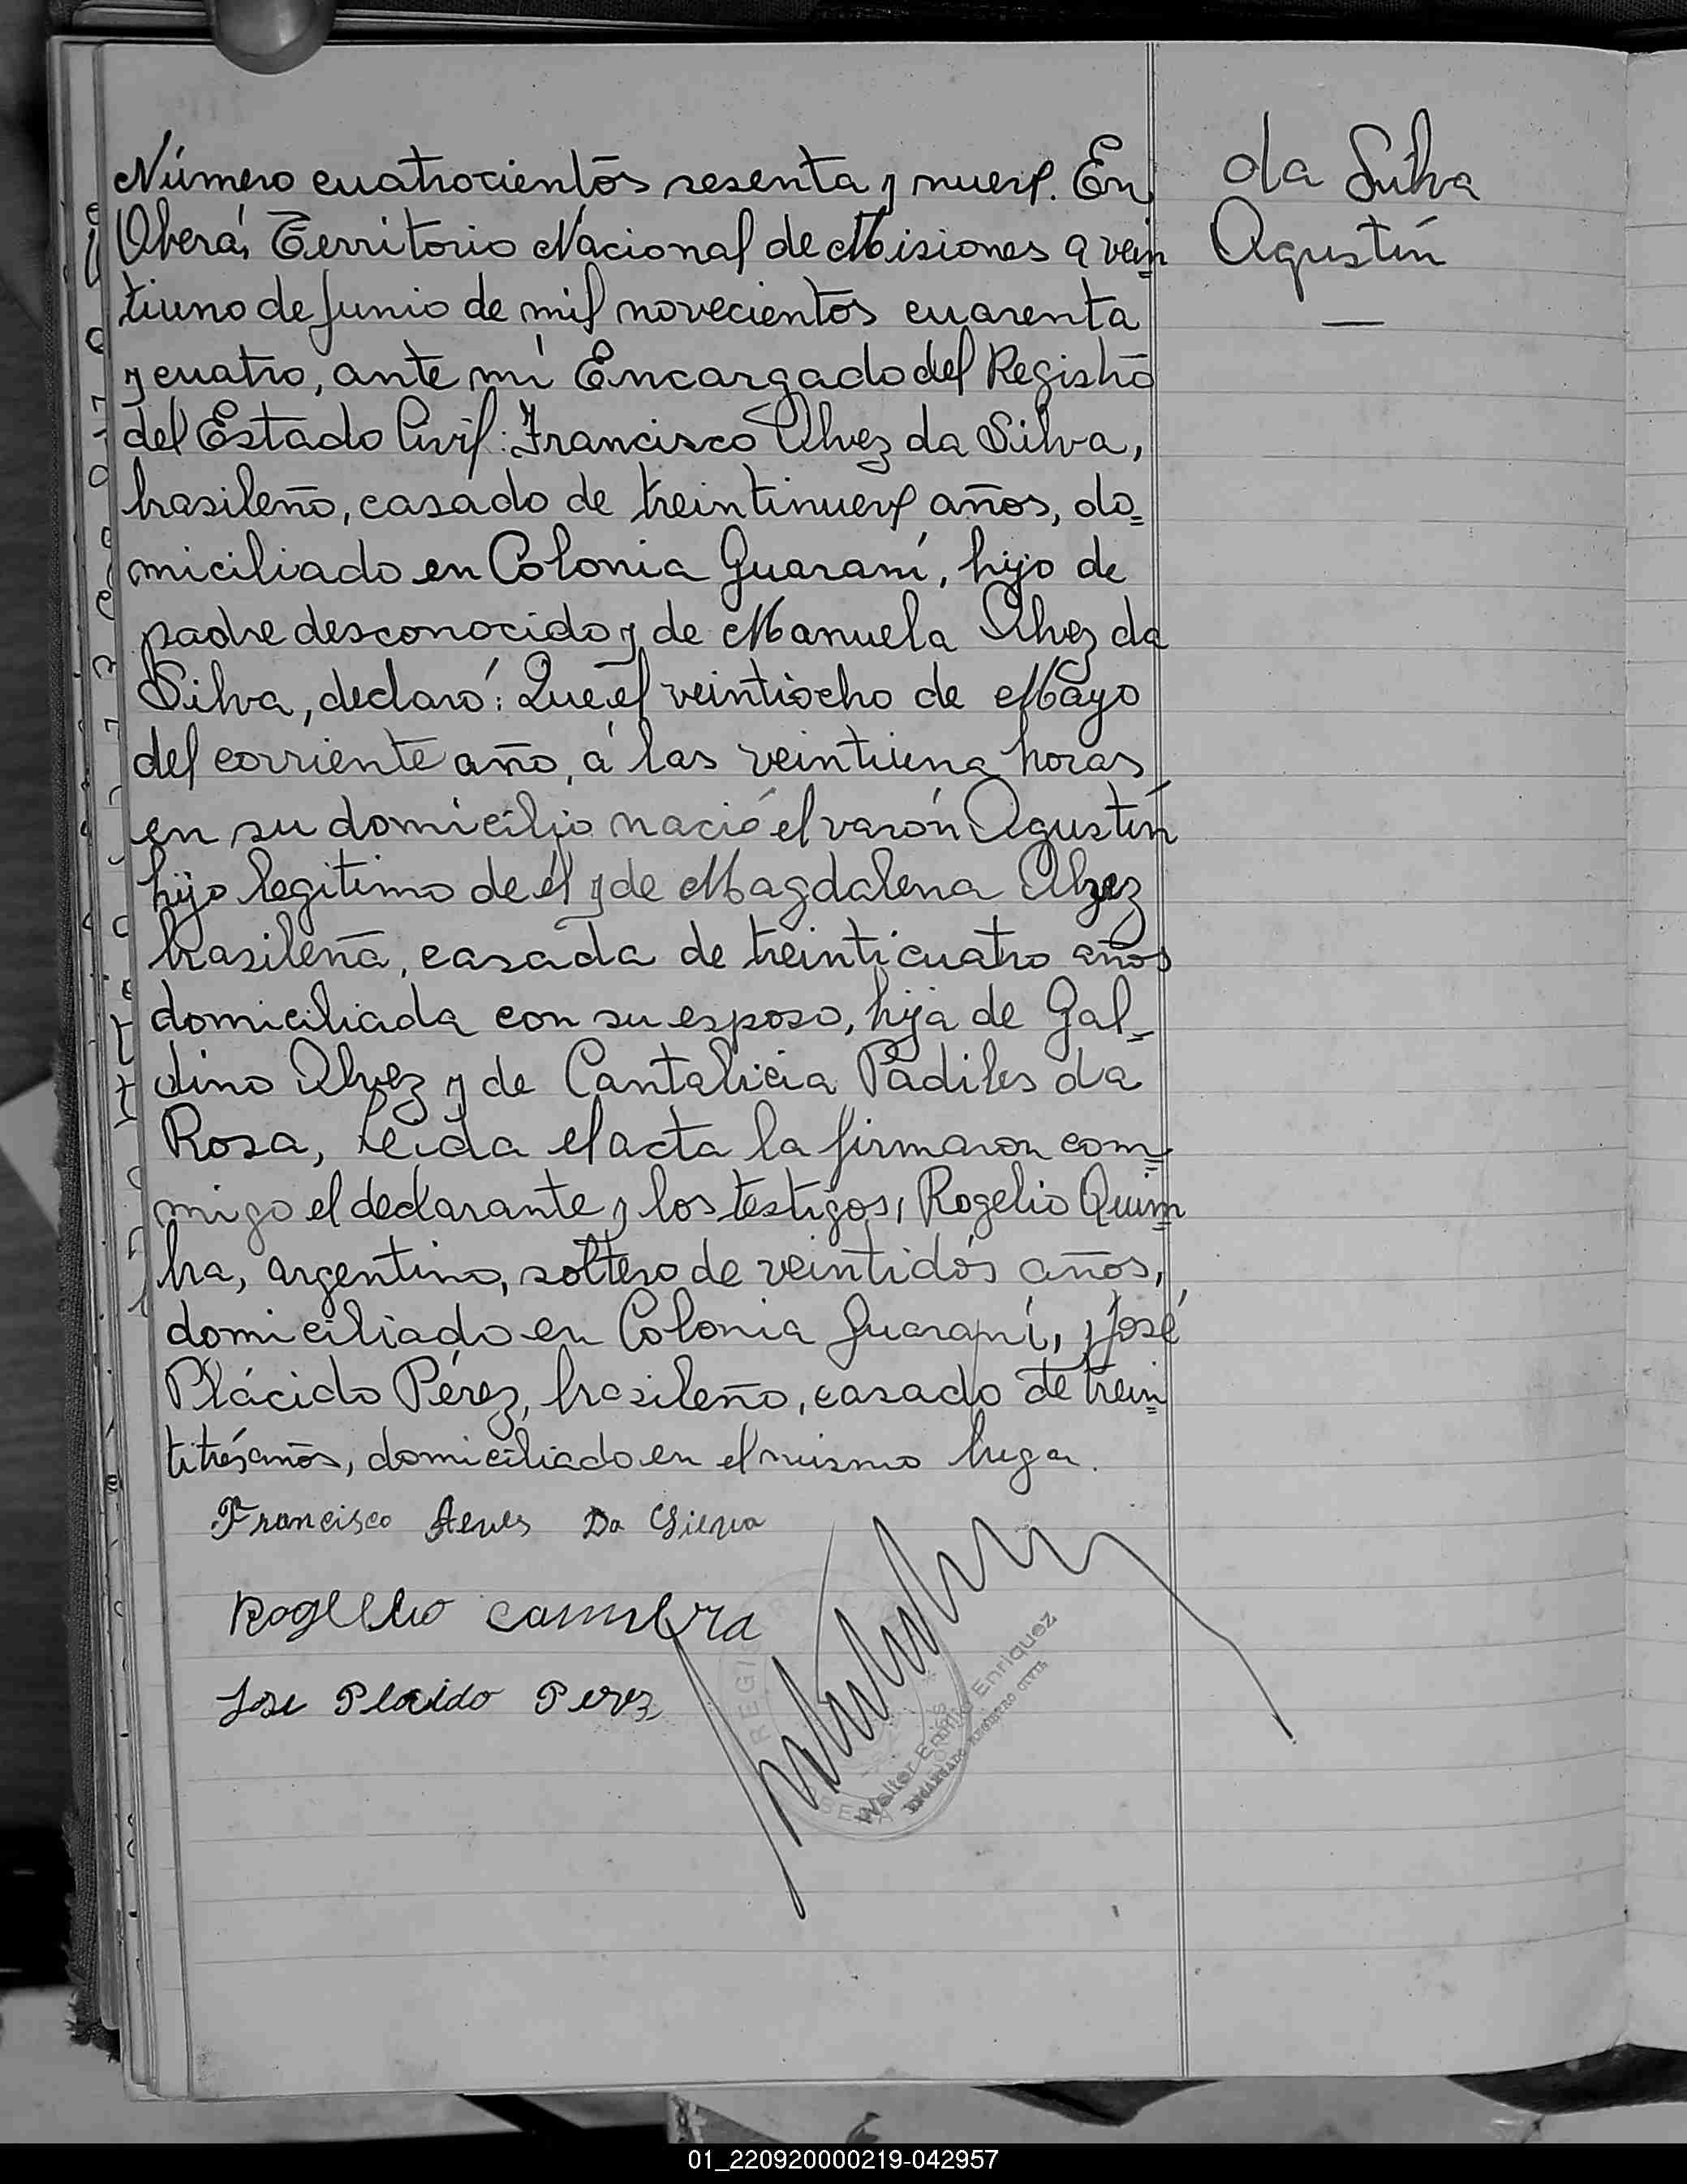 Número cuatrocientos sesenta y nueve. En
Oberá, Territorio Nacional de Misiones a vein=
tiuno de Junio de mil novecientos cuarenta
y cuatro, ante mí Encargado del Registro
del Estado Civil: Francisco Alvez da Silva,
brasileño, casado de treintinueve años, do=
miciliado en Colonia Guaraní, hijo de
padre desconocido y de Manuela Alvez da
Silva, declaró: Que el veintiocho de Mayo
del corriente año, a las veintiuna horas
en su domicilio nació el varón Agustín
hijo legitimo de él y de Magdalena Alvez
brasileña, casada de treinticuatro años
domiciliada con su esposo, hija de Gal=
dino Alvez y de Cantalicia Padiles da
Rosa, leída el acta la firmaron con=
migo el declarante y los testigos, Rogelio Quim=
bra, argentino, soltero de veintidós años,
domiciliado en Colonia Guaraní, y José
Plácido Pérez, brasileño, casado de trein=
titrés años, domiciliado en el mismo lugar.
da Silva
Agustín
Francisco Alves Da Silva
Rogelio
Jose Placido Perez
Walter Emilio Enriquez
ENCARGADO REGISTRO CIVIL
01_220920000219-042957